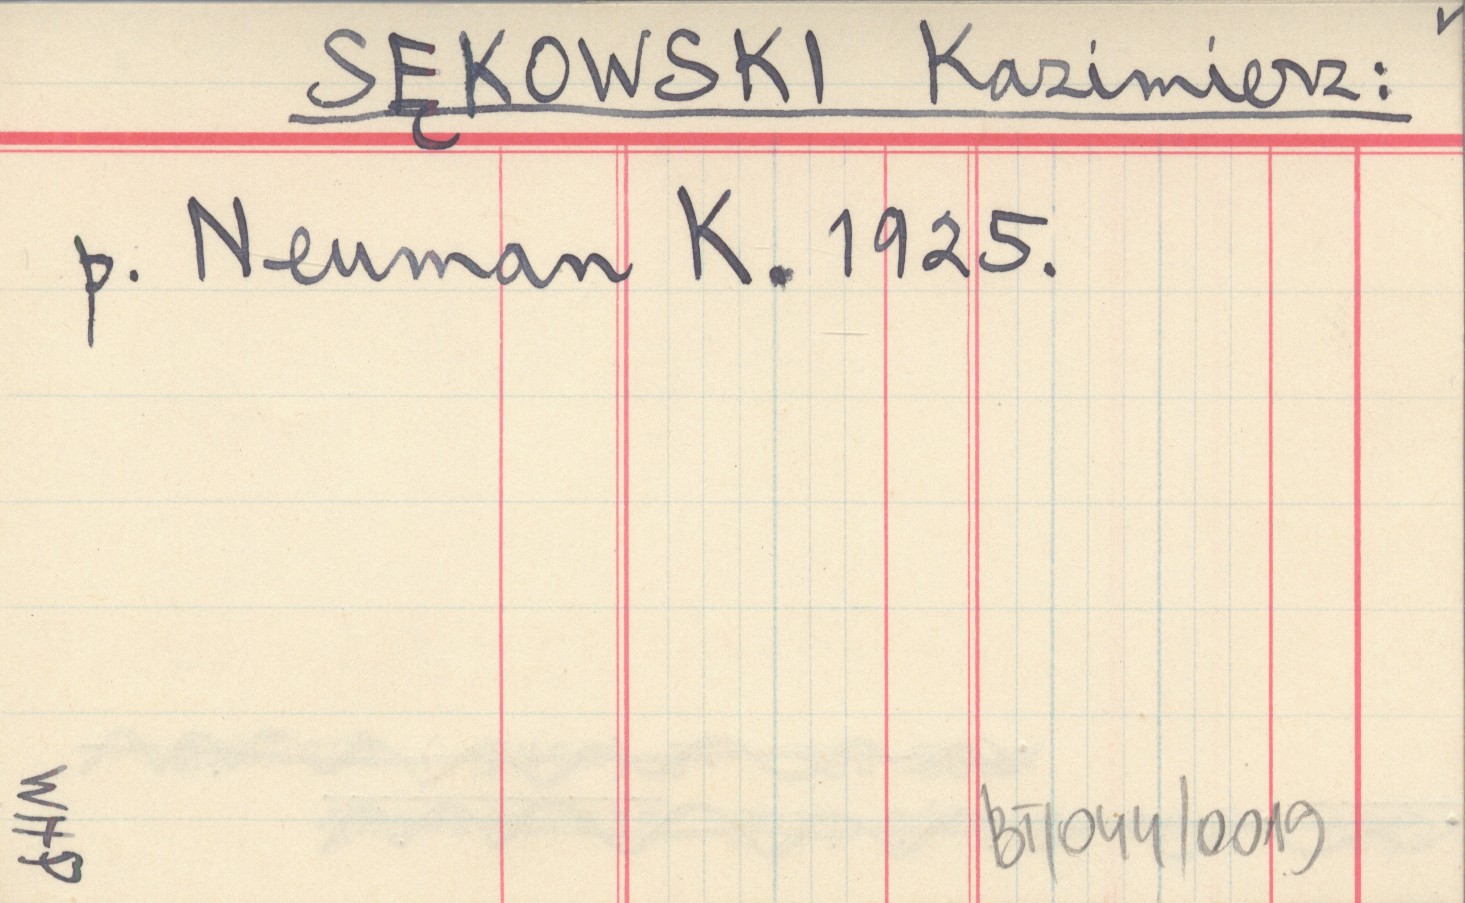 SĘKOWSKI Kazimierz:
p. Neuman K. 1925.
WHP
BT/044/0019